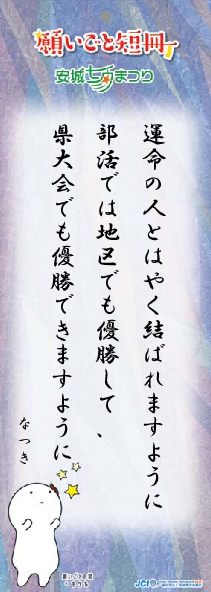 願いごと短冊
安城七夕まつり
運命の人とはやく結ばれますように
部活では地区でも優勝して、
県大会でも優勝できますように
なつき
JCI